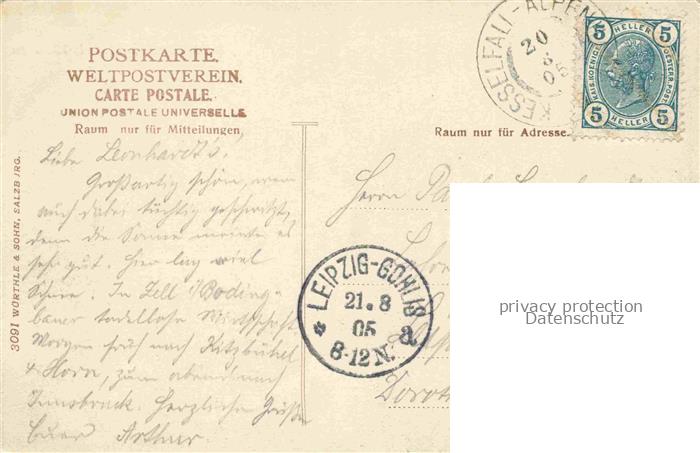 POSTKARTE.
WELTPOSTVEREIN.
CARTE POSTALE.
UNION POSTALE UNIVERSELLE
Raum nur für Mitteilungen
Raum nur für Adresse.
KESSELFALL-ALPEN
20
8
05
5 HELLER 5
KAIS. KOENIGL. OESTERR. POST.
5 HELLER 5
3091 WÜRTHLE & SOHN, SALZBURG.
Liebe Leonhardt's.
Großartig schön, wenn
auch dabei tüchtig geschwitzt,
denn die Sonne meinte es
sehr gut. Hier lag viel
Schnee. In Zell Boding-
bauer tadellose Wirtschaft
Morgen früh nach Kitzbühel
& Horn, zum abend nach
Innsbruck. Herzliche Grüße
Euer Arthur.
Herrn
LEIPZIG-GOHLIS
21.8
05
8-12 N.
* a.
Doroth
privacy protection
Datenschutz